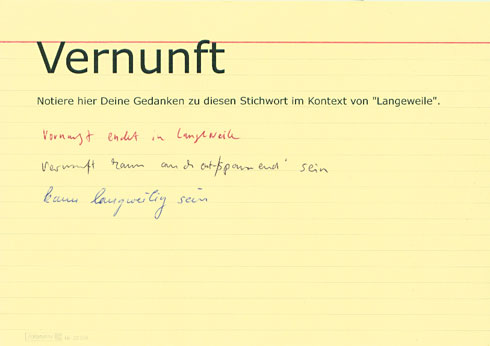 Vernunft
Notiere hier Deine Gedanken zu diesen Stichwort im Kontext von "Langeweile".
Vernunft endet in Langeweile
Vernunft kann auch entspannend sein
kann langweilig sein